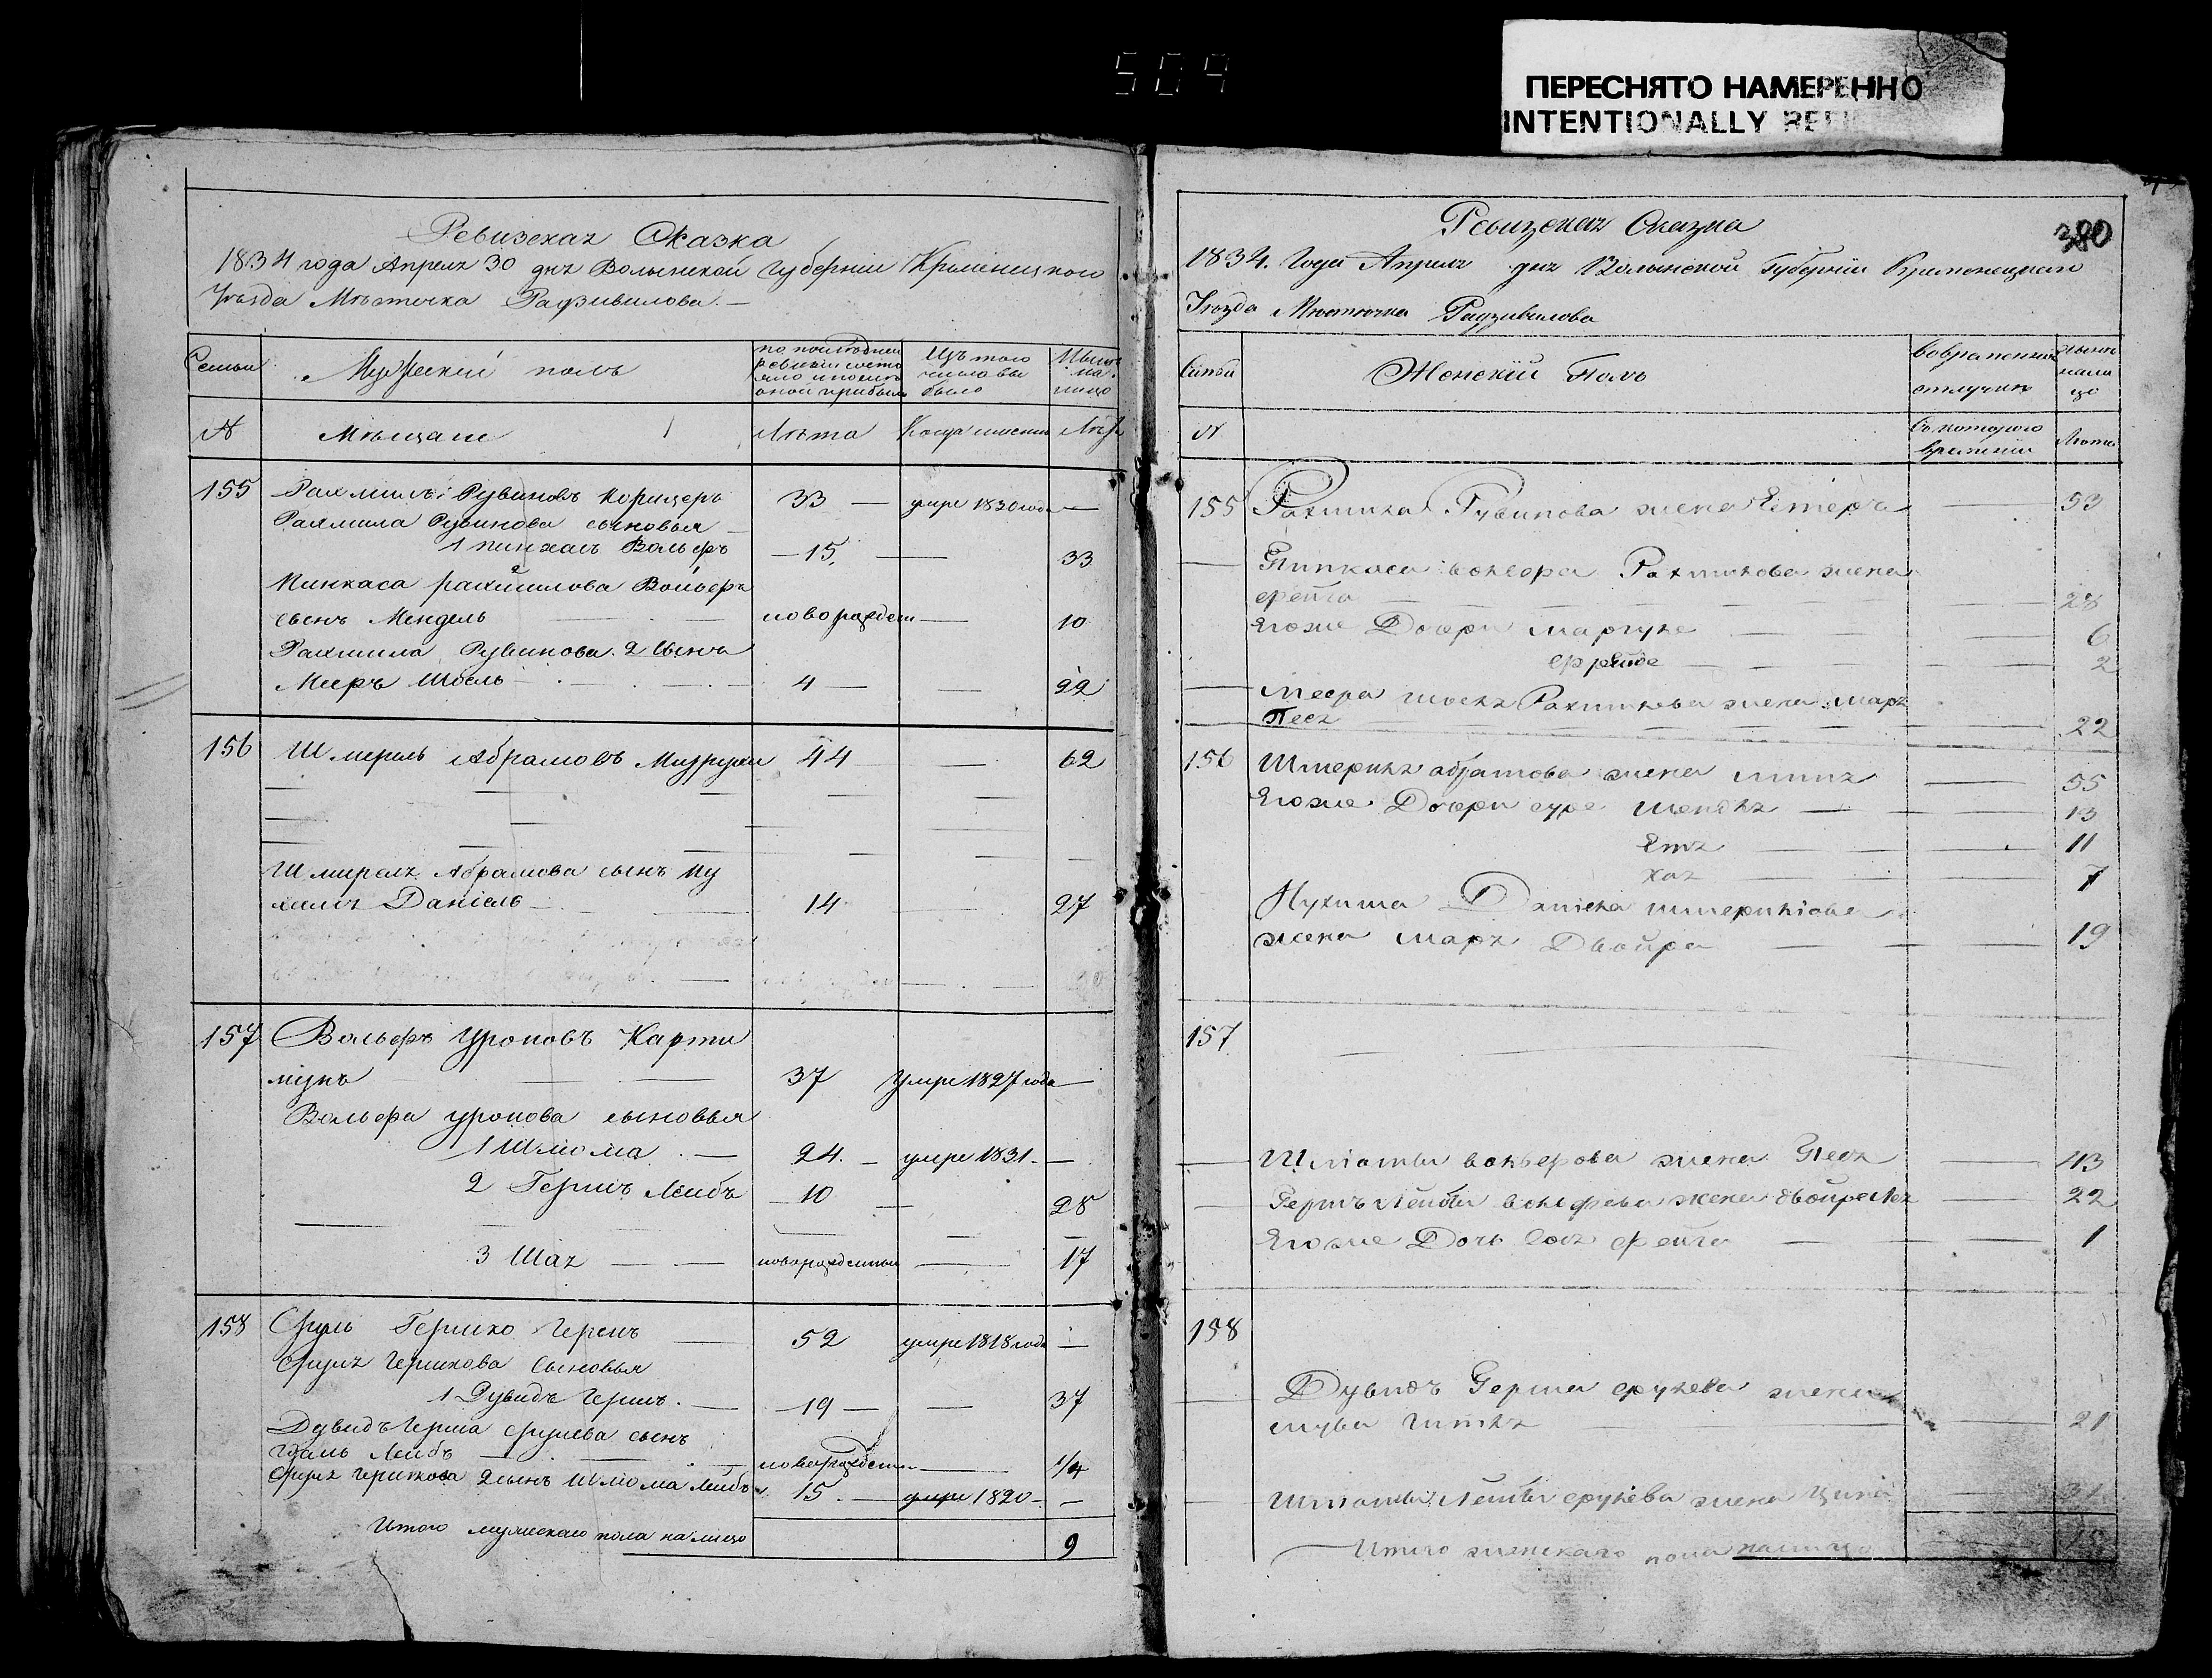 509
ПЕРЕСНЯТО НАМЕРЕННО
INTENTIONALLY
Ревизская Сказка
1834 года Апреля 30 дня Волынской Губерніи Кременецкого
Уезда Мѣстечка Радзивилова. —
Семьи
Мужескій полъ
по последней
ревизіи состо
яло и после
оной прибыло
Изъ того
числа вы
было
Нынѣ
на
лицо
№
Мѣщане
Лѣта
Когда именно
Лѣта
155
Рахмиль Рувиновъ Корицеръ 33 — умре 1830 года —
Рахмила Рувинова сыновья —
1 Пинхасъ Вольфъ — 15. — 33
Пинхаса Рахмилова Вольфа
сынъ Мендель новорожден — 10
Рахмила Рувинова 2 Сынъ
Мееръ Шоель 4 — 22
156
Шмериль Абрамовъ 44 — 62
Шмиреля Абрамова сынъ Ну
химъ Даніель 14 27
157
Вольфъ Уроновъ
37 Умре 1827 года —
Вольфа уронова сыновья
1 Шлиома — 24. — умре 1831. —
2 Гершъ Лейбъ — 10 — 28
3 Шая — новорожденный — 17
158
Сруль Гершко 52 умре 1818 года —
Сруля Гершкова Сыновья
1 Дувидъ Гершъ. — 19 — 37
Дувидъ Герша срулева сынъ
Лейбъ — новорожден — 1/4
Сруля Гершкова 2 сынъ Шлиома Лейбъ 15. — умре 1820 — —
Итого мужескаго пола на лицо 9
380
Ревизская Сказка
1834. Года Апреля дня Волынской Губерніи Кременецкаго
Уезда Мѣстечка Радзивилова
Семьи
Женскій Полъ
Во временной
отлучке
Нынѣ
нали
цо
№
Съ которого
времени
Лѣта
155
Рахмиля Рувинова жена Естеръ — 53
Пинхаса Вольфа Рахмилова жена
фейга — 28
Егоже Дочери 6
фрейде — 2
Меера Шоеля Рахмилова жена Маря
Песя — 22
156
Шмериля Абрамова жена — 55
Егоже Дочери суре Шендля — 13
Етя — 11
Хая — 7
Нухима Даніеля Шмерильова
жена Маря Двойра — 19
157
Шлиомы Вольфова жена Песя — 43
Гершъ Лейбы Вольфова жена — 22
Егоже Дочь фейга — 1
158
Дувидъ Герша срулева жена
Гитля — 21
Шлиомы Лейбы срулева жена — 31
Итого женскаго пола налицо